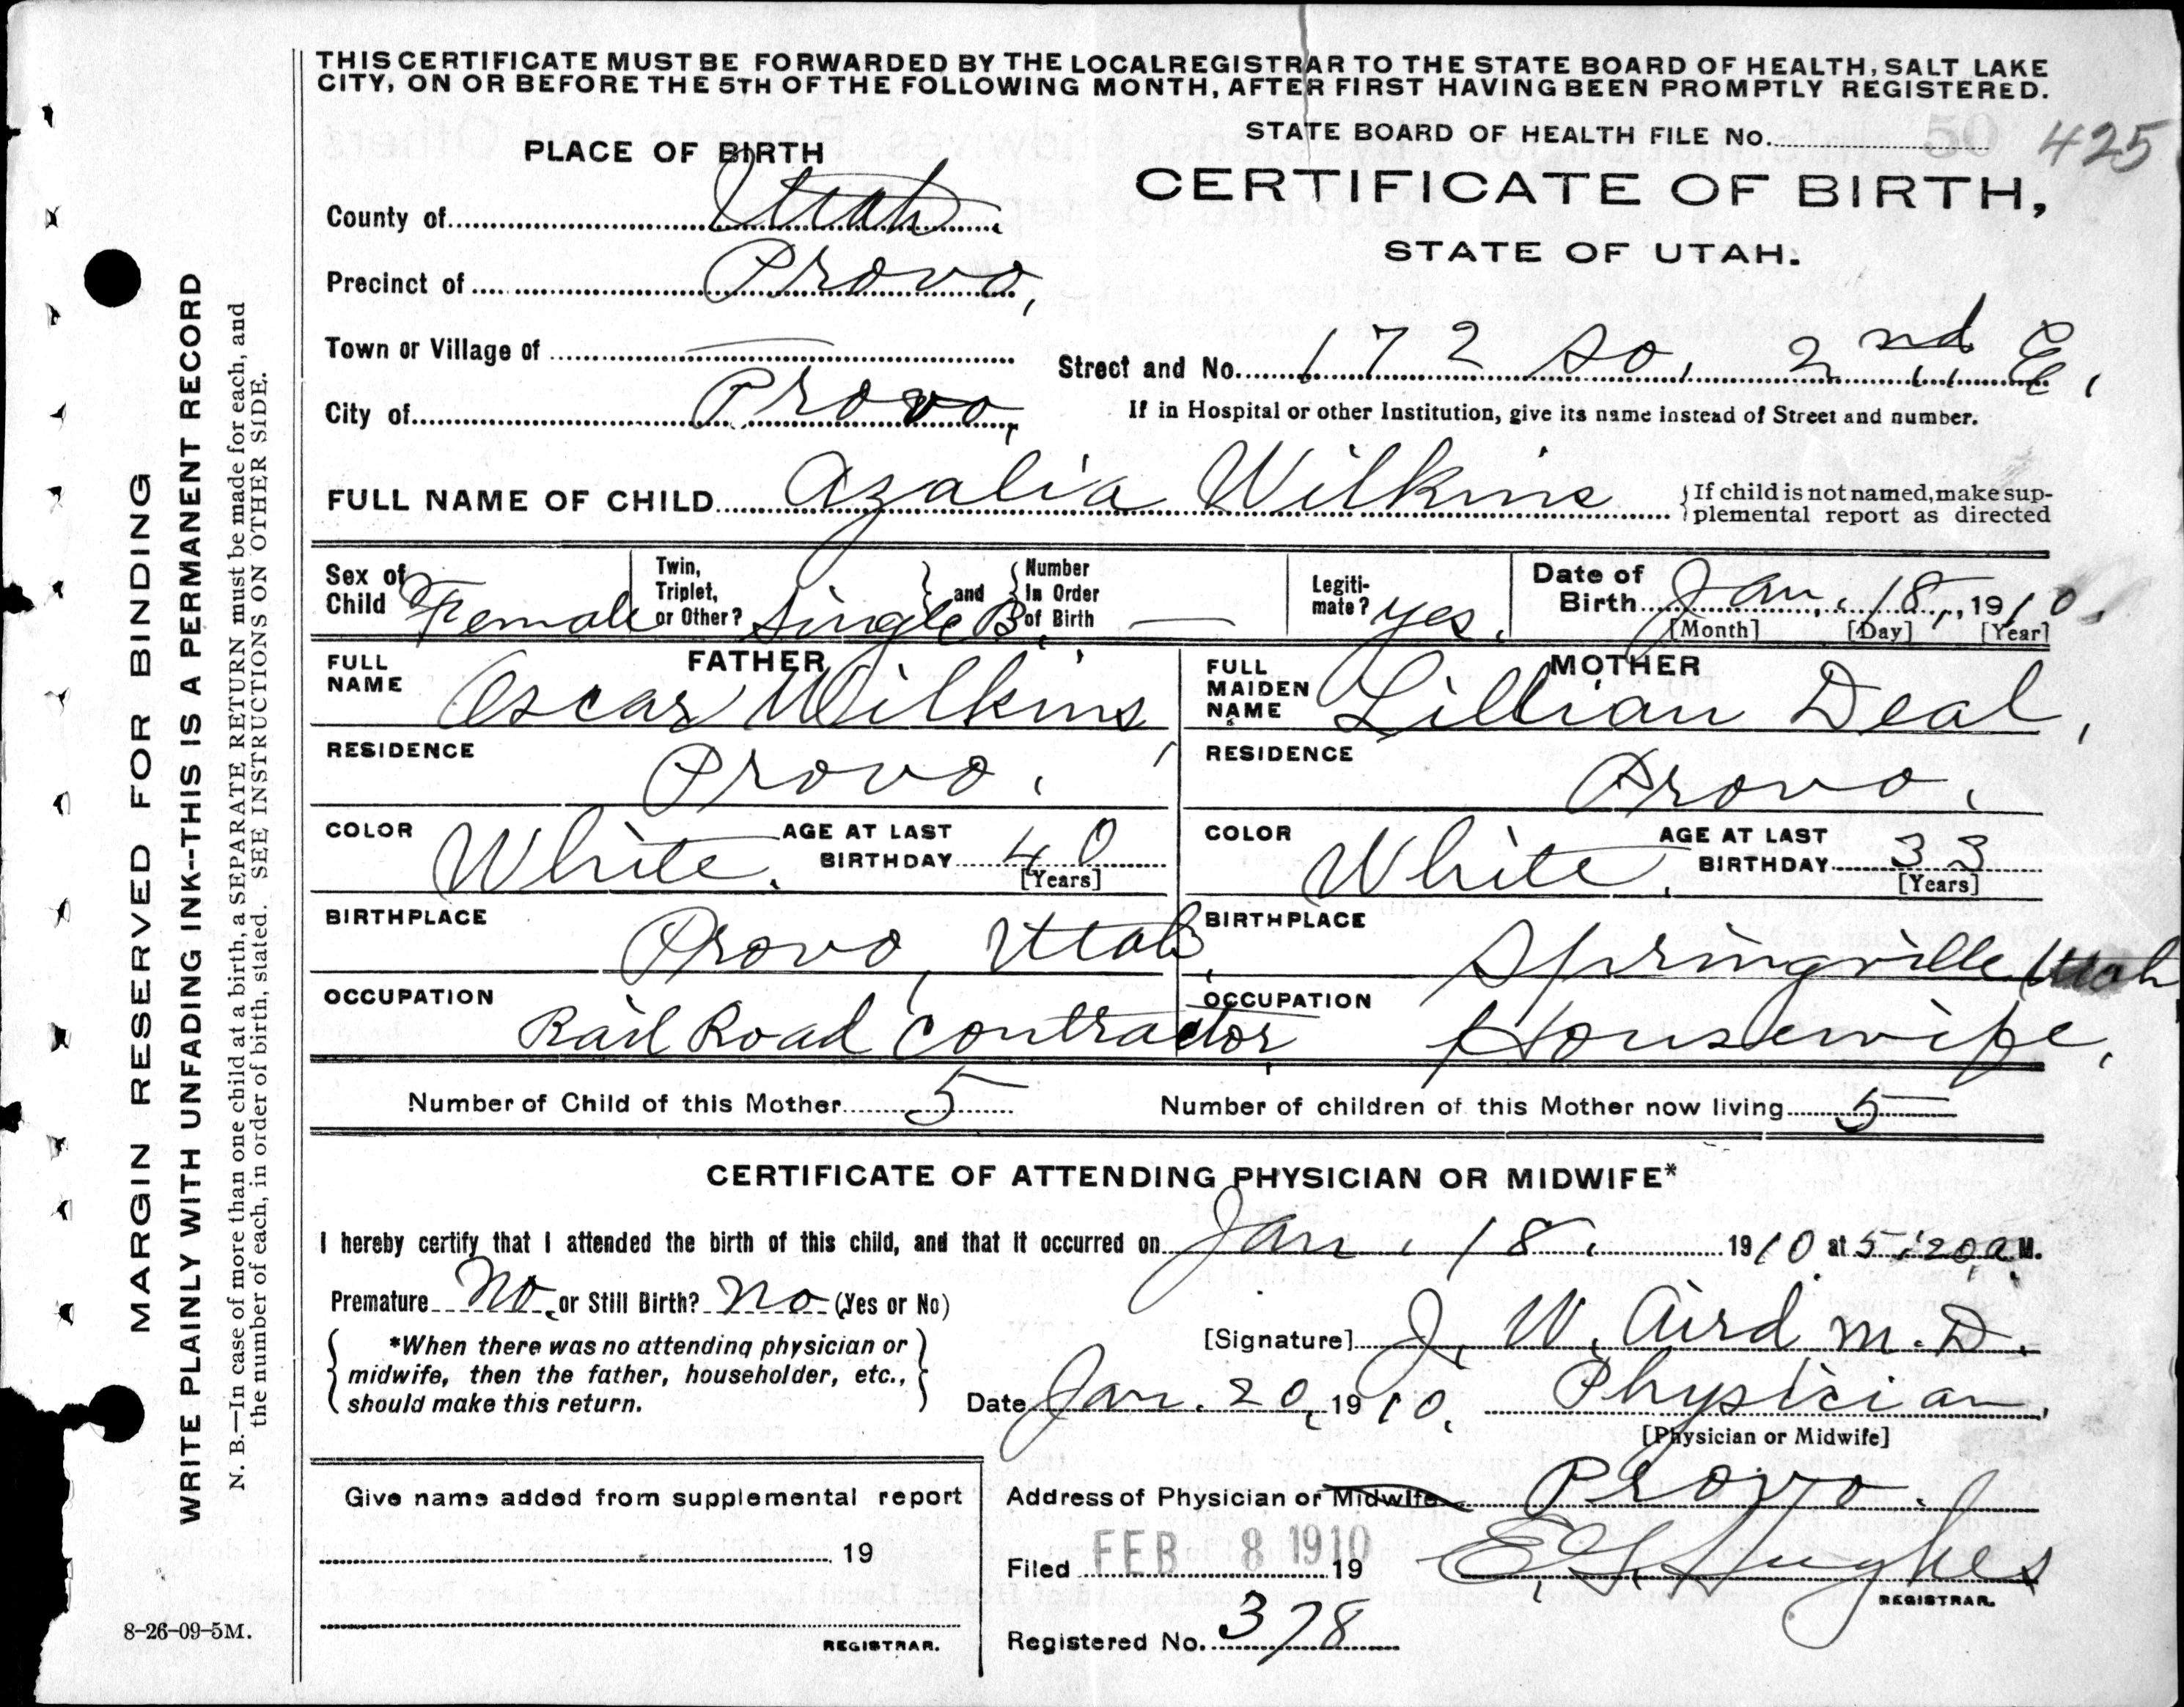 THIS CERTIFICATE MUST BE FORWARDED BY THE LOCAL REGISTRAR TO THE STATE BOARD OF HEALTH, SALT LAKE
CITY, ON OR BEFORE THE 5TH OF THE FOLLOWING MONTH, AFTER FIRST HAVING BEEN PROMPTLY REGISTERED.
STATE BOARD OF HEALTH FILE No. 50 425
PLACE OF BIRTH
CERTIFICATE OF BIRTH,
STATE OF UTAH.
County of Utah.
Precinct of Provo,
Town or Village of —
Street and No. 172 So. 2nd E.
City of Provo,
If in Hospital or other Institution, give its name instead of Street and number.
FULL NAME OF CHILD Azalia Wilkins
{If child is not named, make sup-
plemental report as directed
Sex of Child Female
Twin, Triplet, or Other? Single B. } and { Number In Order of Birth —
Legiti-mate? yes.
Date of Birth Jan. 18, 1910.
[Month] [Day] [Year]
FATHER
FULL NAME Oscar Wilkins,
MOTHER
FULL MAIDEN NAME Lillian Deal,
RESIDENCE Provo.
RESIDENCE Provo.
COLOR White. AGE AT LAST BIRTHDAY 40 [Years]
COLOR White. AGE AT LAST BIRTHDAY 33 [Years]
BIRTHPLACE Provo, Utah,
BIRTHPLACE Springville Utah
OCCUPATION Rail Road Contractor,
OCCUPATION Housewife,
Number of Child of this Mother 5
Number of children of this Mother now living 5
CERTIFICATE OF ATTENDING PHYSICIAN OR MIDWIFE*
I hereby certify that I attended the birth of this child, and that it occurred on Jan. 18. 1910 at 5:20 a.M.
Premature No. or Still Birth? No (Yes or No)
*When there was no attending physician or
midwife, then the father, householder, etc.,
should make this return.
[Signature] J. W. Aird M.D.
Date Jan. 20, 1910. Physician,
[Physician or Midwife]
Give name added from supplemental report
19
REGISTRAR.
Address of Physician or Midwife Provo.
Filed FEB 8 1910 19 E. G. Hughes
REGISTRAR.
Registered No. 378
8-26-09-5M.
MARGIN RESERVED FOR BINDING
WRITE PLAINLY WITH UNFADING INK--THIS IS A PERMANENT RECORD
N. B.—In case of more than one child at a birth, a SEPARATE RETURN must be made for each, and
the number of each, in order of birth, stated. SEE INSTRUCTIONS ON OTHER SIDE.